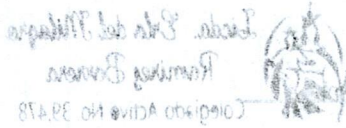 Licda. Erla del Milagro
Ramirez Barrera
Colegiado Activo No. 39,478